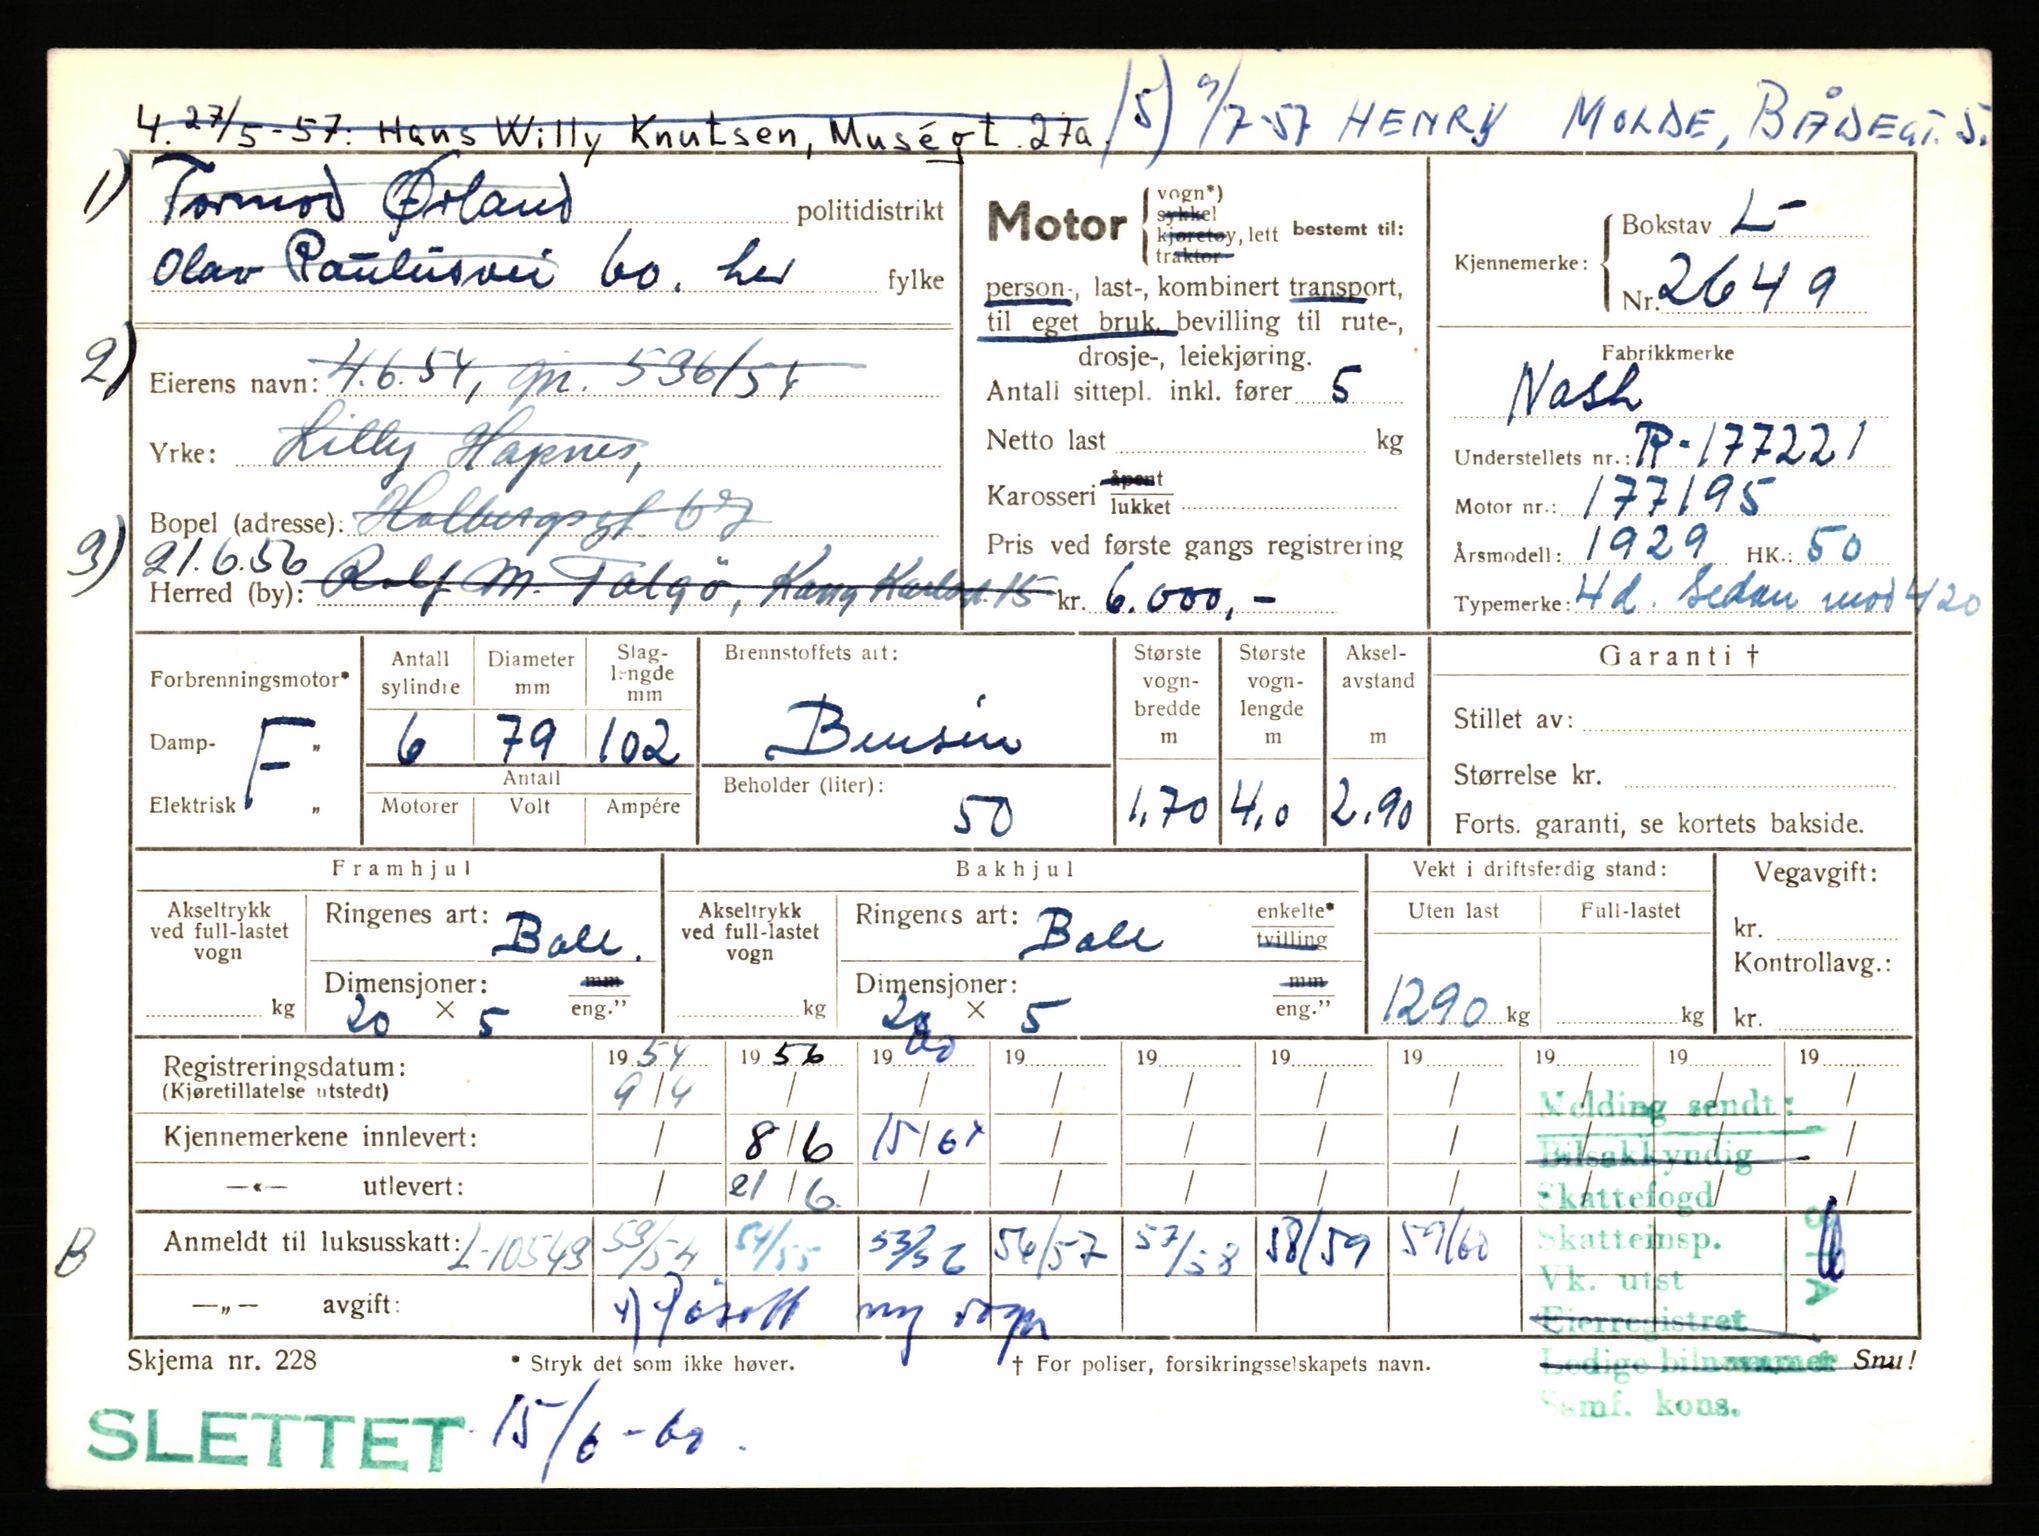 4. 27/5-57: Hans Willy Knutsen, Muségt. 27a. 5) 9/7-57 HENRY MOLDE, BÅDEGT. 5.
1) Tormod Ørland politidistrikt
Olav Paulusvei 60. her fylke
2) Eierens navn: 4.6.54, gn. 596/54
Yrke: Lilly Hapnes,
Bopel (adresse): Holbergsgt. 67
3) 21.6.56
Herred (by): Rolf M. Talgö, 15
Motor vogn*)
sykkel
kjøretøy, lett bestemt til:
traktor
person-, last-, kombinert transport,
til eget bruk, bevilling til rute-,
drosje-, leiekjøring.
Antall sittepl. inkl. fører 5
Netto last kg
Karosseri åpent
lukket
Pris ved første gangs registrering
kr. 6.000,-
Kjennemerke: Bokstav L-
Nr. 2649
Fabrikkmerke
Nash
Understellets nr.: R-177221
Motor nr.: 177195
Årsmodell: 1929 HK.: 50
Typemerke: 4d. Sedan mod 420
Forbrenningsmotor*
Damp- „
Elektrisk „
F
Antall sylindre Diameter mm Slag-lengde mm
6 79 102
Antall
Motorer Volt Ampére
Brennstoffets art:
Bensin
Beholder (liter):
50
Største vogn-bredde m Største vogn-lengde m Aksel-avstand m
1,70 4,0 2.90
Garanti †
Stillet av:
Størrelse kr.
Forts. garanti, se kortets bakside.
Framhjul Bakhjul Vekt i driftsferdig stand: Vegavgift:
Akseltrykk ved full-lastet vogn kg
Ringenes art: Ball.
Dimensjoner: mm
20 × 5 eng.”
Akseltrykk ved full-lastet vogn kg
Ringenes art: Ball enkelte*
tvilling
Dimensjoner: mm
20 × 5 eng.”
Uten last Full-lastet
1290 kg kg
kr.
Kontrollavg.:
kr.
Registreringsdatum: 19 54 19 56 19 60 19 19 19 19 19 19 19
(Kjøretillatelse utstedt) 9/4 / / / / / / / / /
Kjennemerkene innlevert: / 8/6 15/6 x / / / / / / /
—«— utlevert: / 21/6. / / / / / / / /
B Anmeldt til luksusskatt: L-10549 53/54 54/55 55/56 56/57 57/58 58/59 59/60
—„— avgift: x) Påsatt ny vogn
Melding sendt:
Bilsakkyndig
Skattefogd
Skatteinsp.
Vk. utst
Eierregistret
Ledige bilnummer
Samf. kons.
Skjema nr. 228 * Stryk det som ikke høver. † For poliser, forsikringsselskapets navn. Snu!
SLETTET 15/6-60.